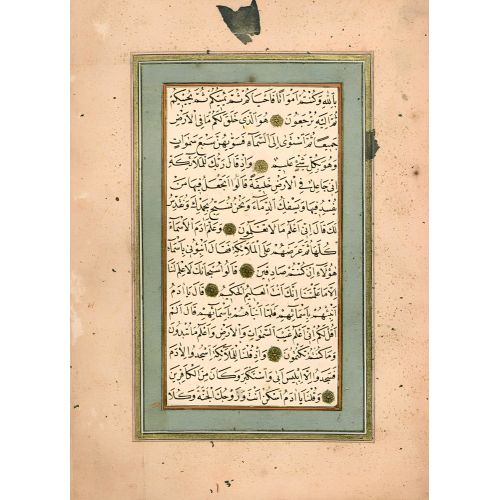 بالله وكنتم امواتا فاحياكم ثم يميتكم ثم يحييكم
ثم اليه ترجعون هو الذي خلق لكم ما في الارض
جميعا ثم استوى الى السماء فسويهن سبع سموات
وهو بكل شئ عليم واذ قال ربك للملائكة
اني جاعل في الارض خليفة قالوا اتجعل فيها من
يفسد فيها ويسفك الدماء ونحن نسبح بحمدك ونقدس
لك قال اني اعلم ما لا تعلمون وعلم ادم الاسماء
كلها ثم عرضهم على الملائكة فقال انبؤني باسماء
هؤلاء ان كنتم صادقين قالوا سبحانك لا علم لنا
الا ما علمتنا انك انت العليم الحكيم قال يا ادم
انبئهم باسمائهم فلما انباهم باسمائهم قال الم
اقل لكم اني اعلم غيب السموات والارض واعلم ما تبدون
وما كنتم تكتمون واذ قلنا للملائكة اسجدوا لادم
فسجدوا الا ابليس ابى واستكبر وكان من الكافرين
وقلنا يا ادم اسكن انت وزوجك الجنة وكلا